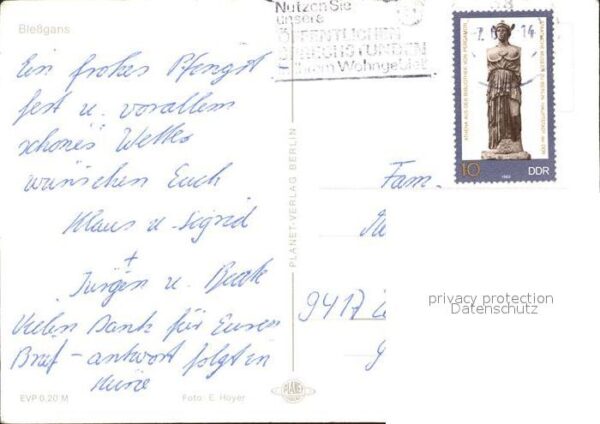 Bleßgans
Ein frohes Pfingst-
fest u. vorallem
schönes Wetter
wünschen Euch
Klaus u. Sigrid
+
Jürgen u. Beate
Vielen Dank für Euren
Brief - antwort folgt in
Kürze
EVP 0,20 M
Foto: E. Hoyer
PLANET-VERLAG BERLIN
PLANET
Nutzen Sie
unsere
ÖFFENTLICHEN
SPRECHSTUNDEN
in Ihrem Wohngebiet
14
ATHENA AUS DER BIBLIOTHEK VON PERGAMON
STAATLICHE MUSEEN ZU BERLIN HAUPTSTADT der DDR
10
1983
DDR
Fam.
9417
privacy protection
Datenschutz